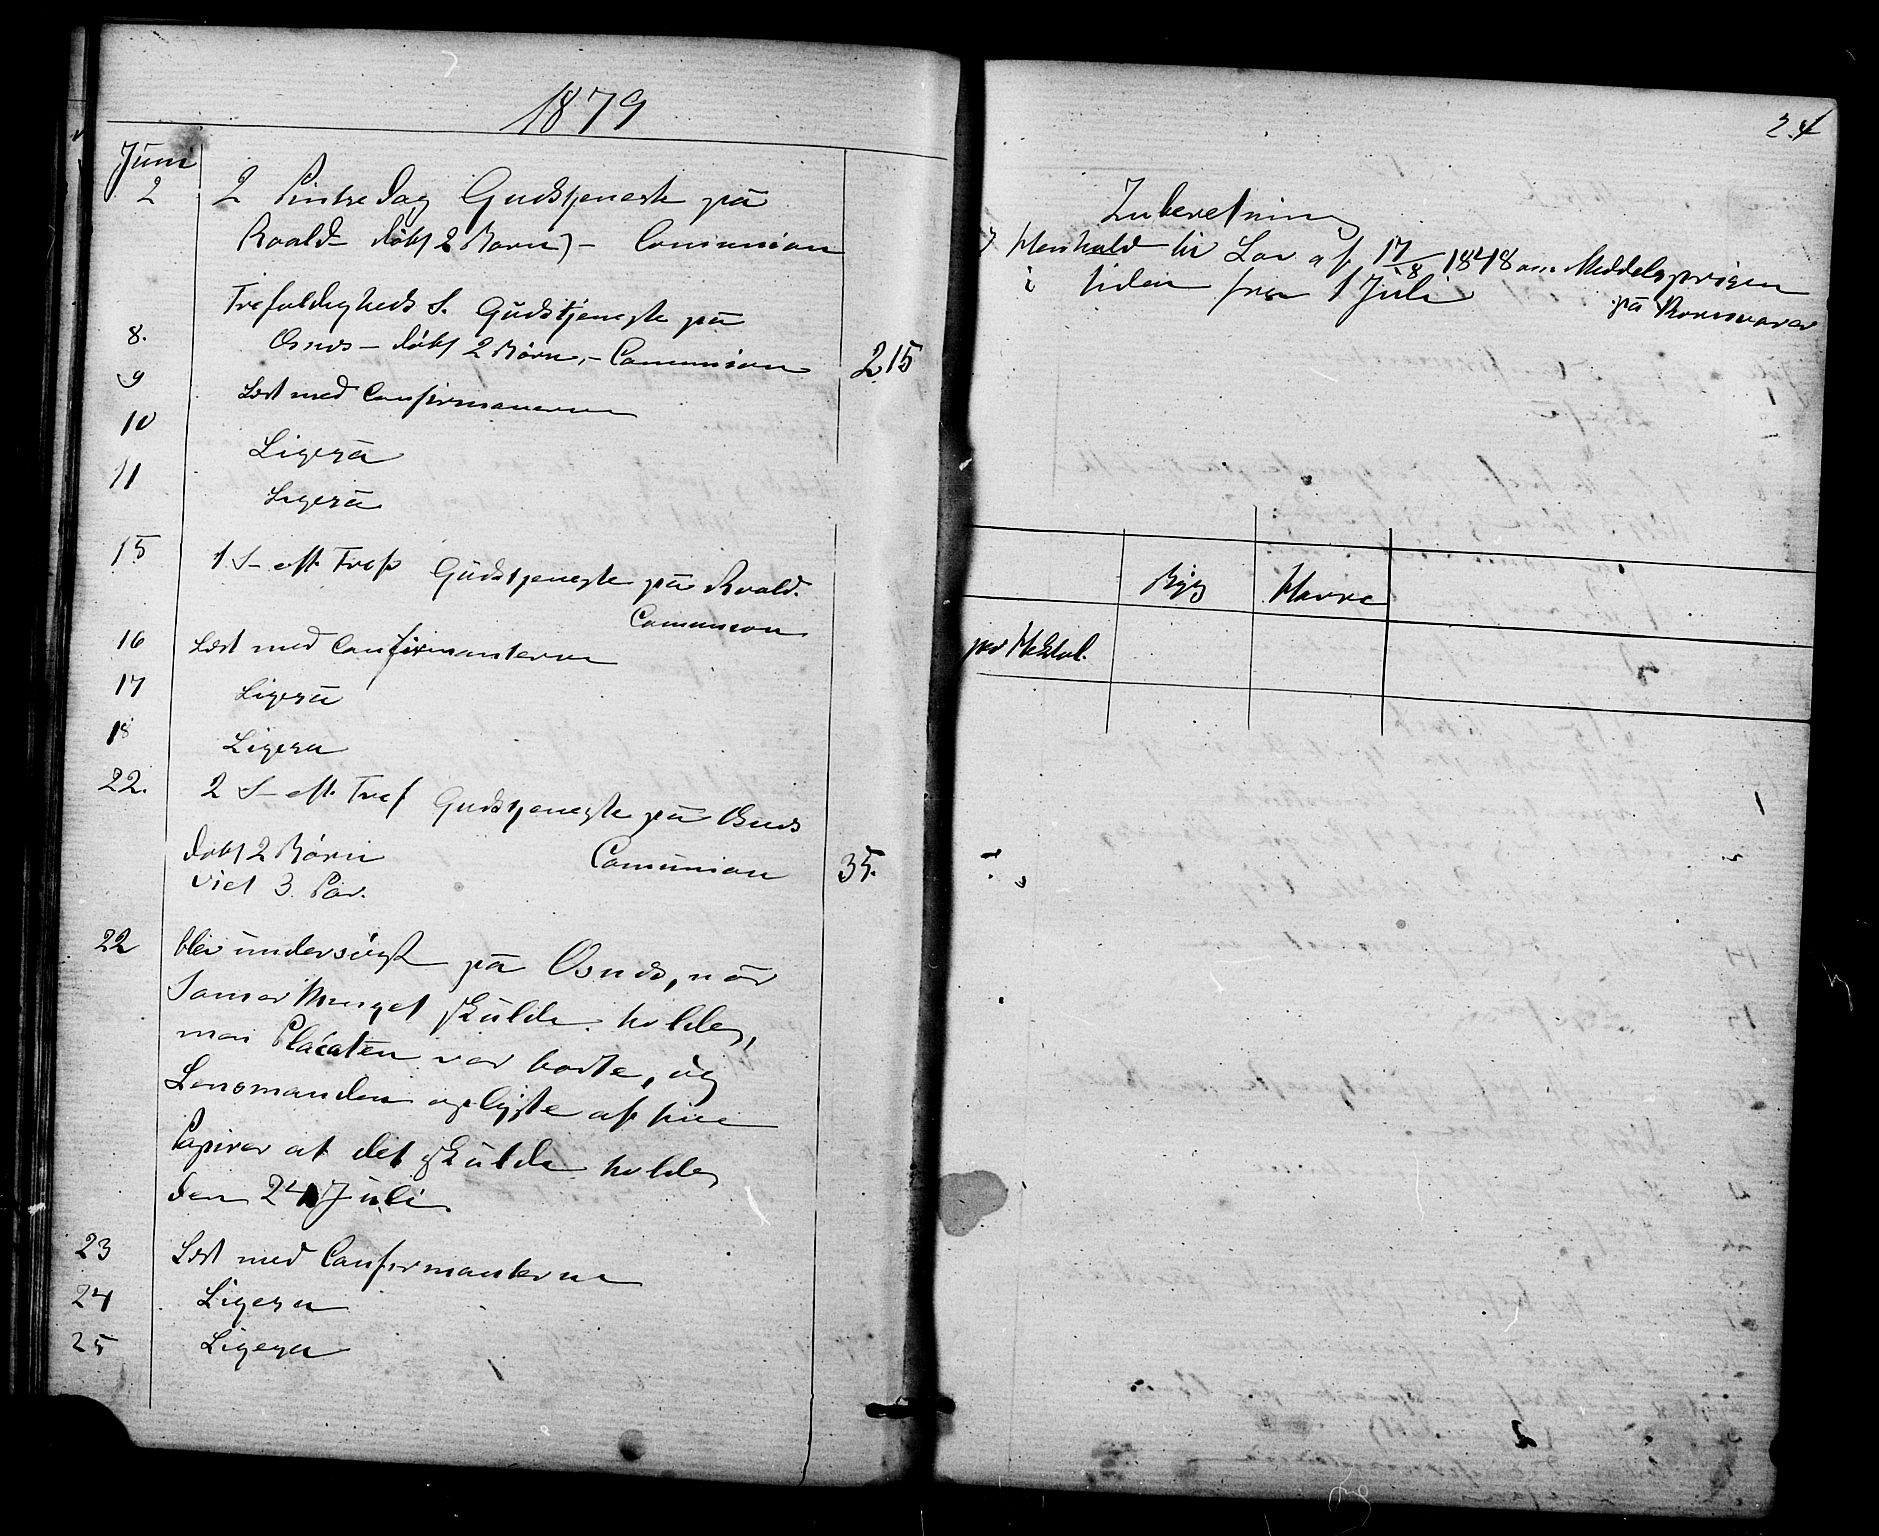 1879
Juni
2 2 Pintsedag Gudstjeneste på
Roald døbt 2 Børn) - Comunion
8. Trefoldigheds S. Gudstjeneste på
Osnes - døbt 2 Børn, - Comunion 215
9 Læst med Confirmanterne
10 Ligeså
11 Ligeså
15 1 S - eft Tref Gudstjeneste på Roald.
Comunion
16 Læst med Confirmanterne
17 Ligeså
18 Ligesa
22. 2 S - eft. Tref Gudstjeneste på Osnes
døbt 2 Børn Comunion 35.
viet 3 Par.
22 blev undersøgt på Osnes, når
Somerthinget skulde holdes,
men Placaten var borte, og
Lensmanden oplyste af sine
Papirer at det skulde holdes
den 24 Juli.
23 Læst med Confirmanterne
24 Ligesa
25 Ligesa
24
Inberetning
I Henhold til Lov af 17/8 1848 om Middelsprisen
på Kornvarer
i tiden fra 1 Juli
Byg Havre
per Hektol.